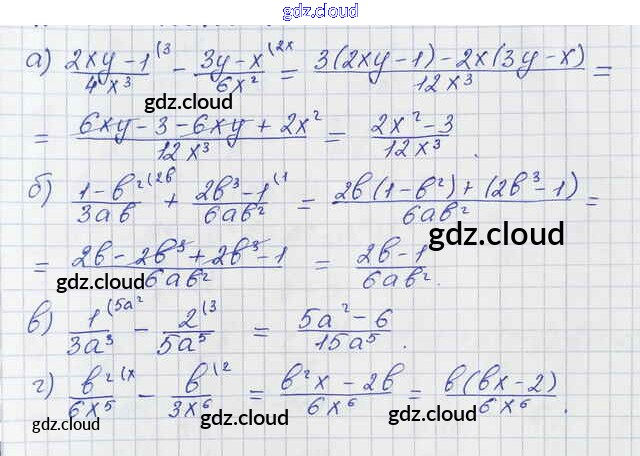 gdz.cloud
а) (2xy - 1)/(4x³) (3 - (3y - x)/(6x²) (2x = (3(2xy - 1) - 2x(3y - x))/(12x³) =
gdz.cloud
= (6xy - 3 - 6xy + 2x²)/(12x³) = (2x² - 3)/(12x³).
б) (1 - b²)/(3ab) (2b + (2b³ - 1)/(6ab²) (1 = (2b(1 - b²) + (2b³ - 1))/(6ab²) =
gdz.cloud
= (2b - 2b³ + 2b³ - 1)/(6ab²) = (2b - 1)/(6ab²).
gdz.cloud
в) 1/(3a³) (5a² - 2/(5a⁵) (3 = (5a² - 6)/(15a⁵).
г) b²/(6x⁵) (x - b/(3x⁶) (2 = (b²x - 2b)/(6x⁶) = (b(bx - 2))/(6x⁶).
gdz.cloud gdz.cloud gdz.cloud